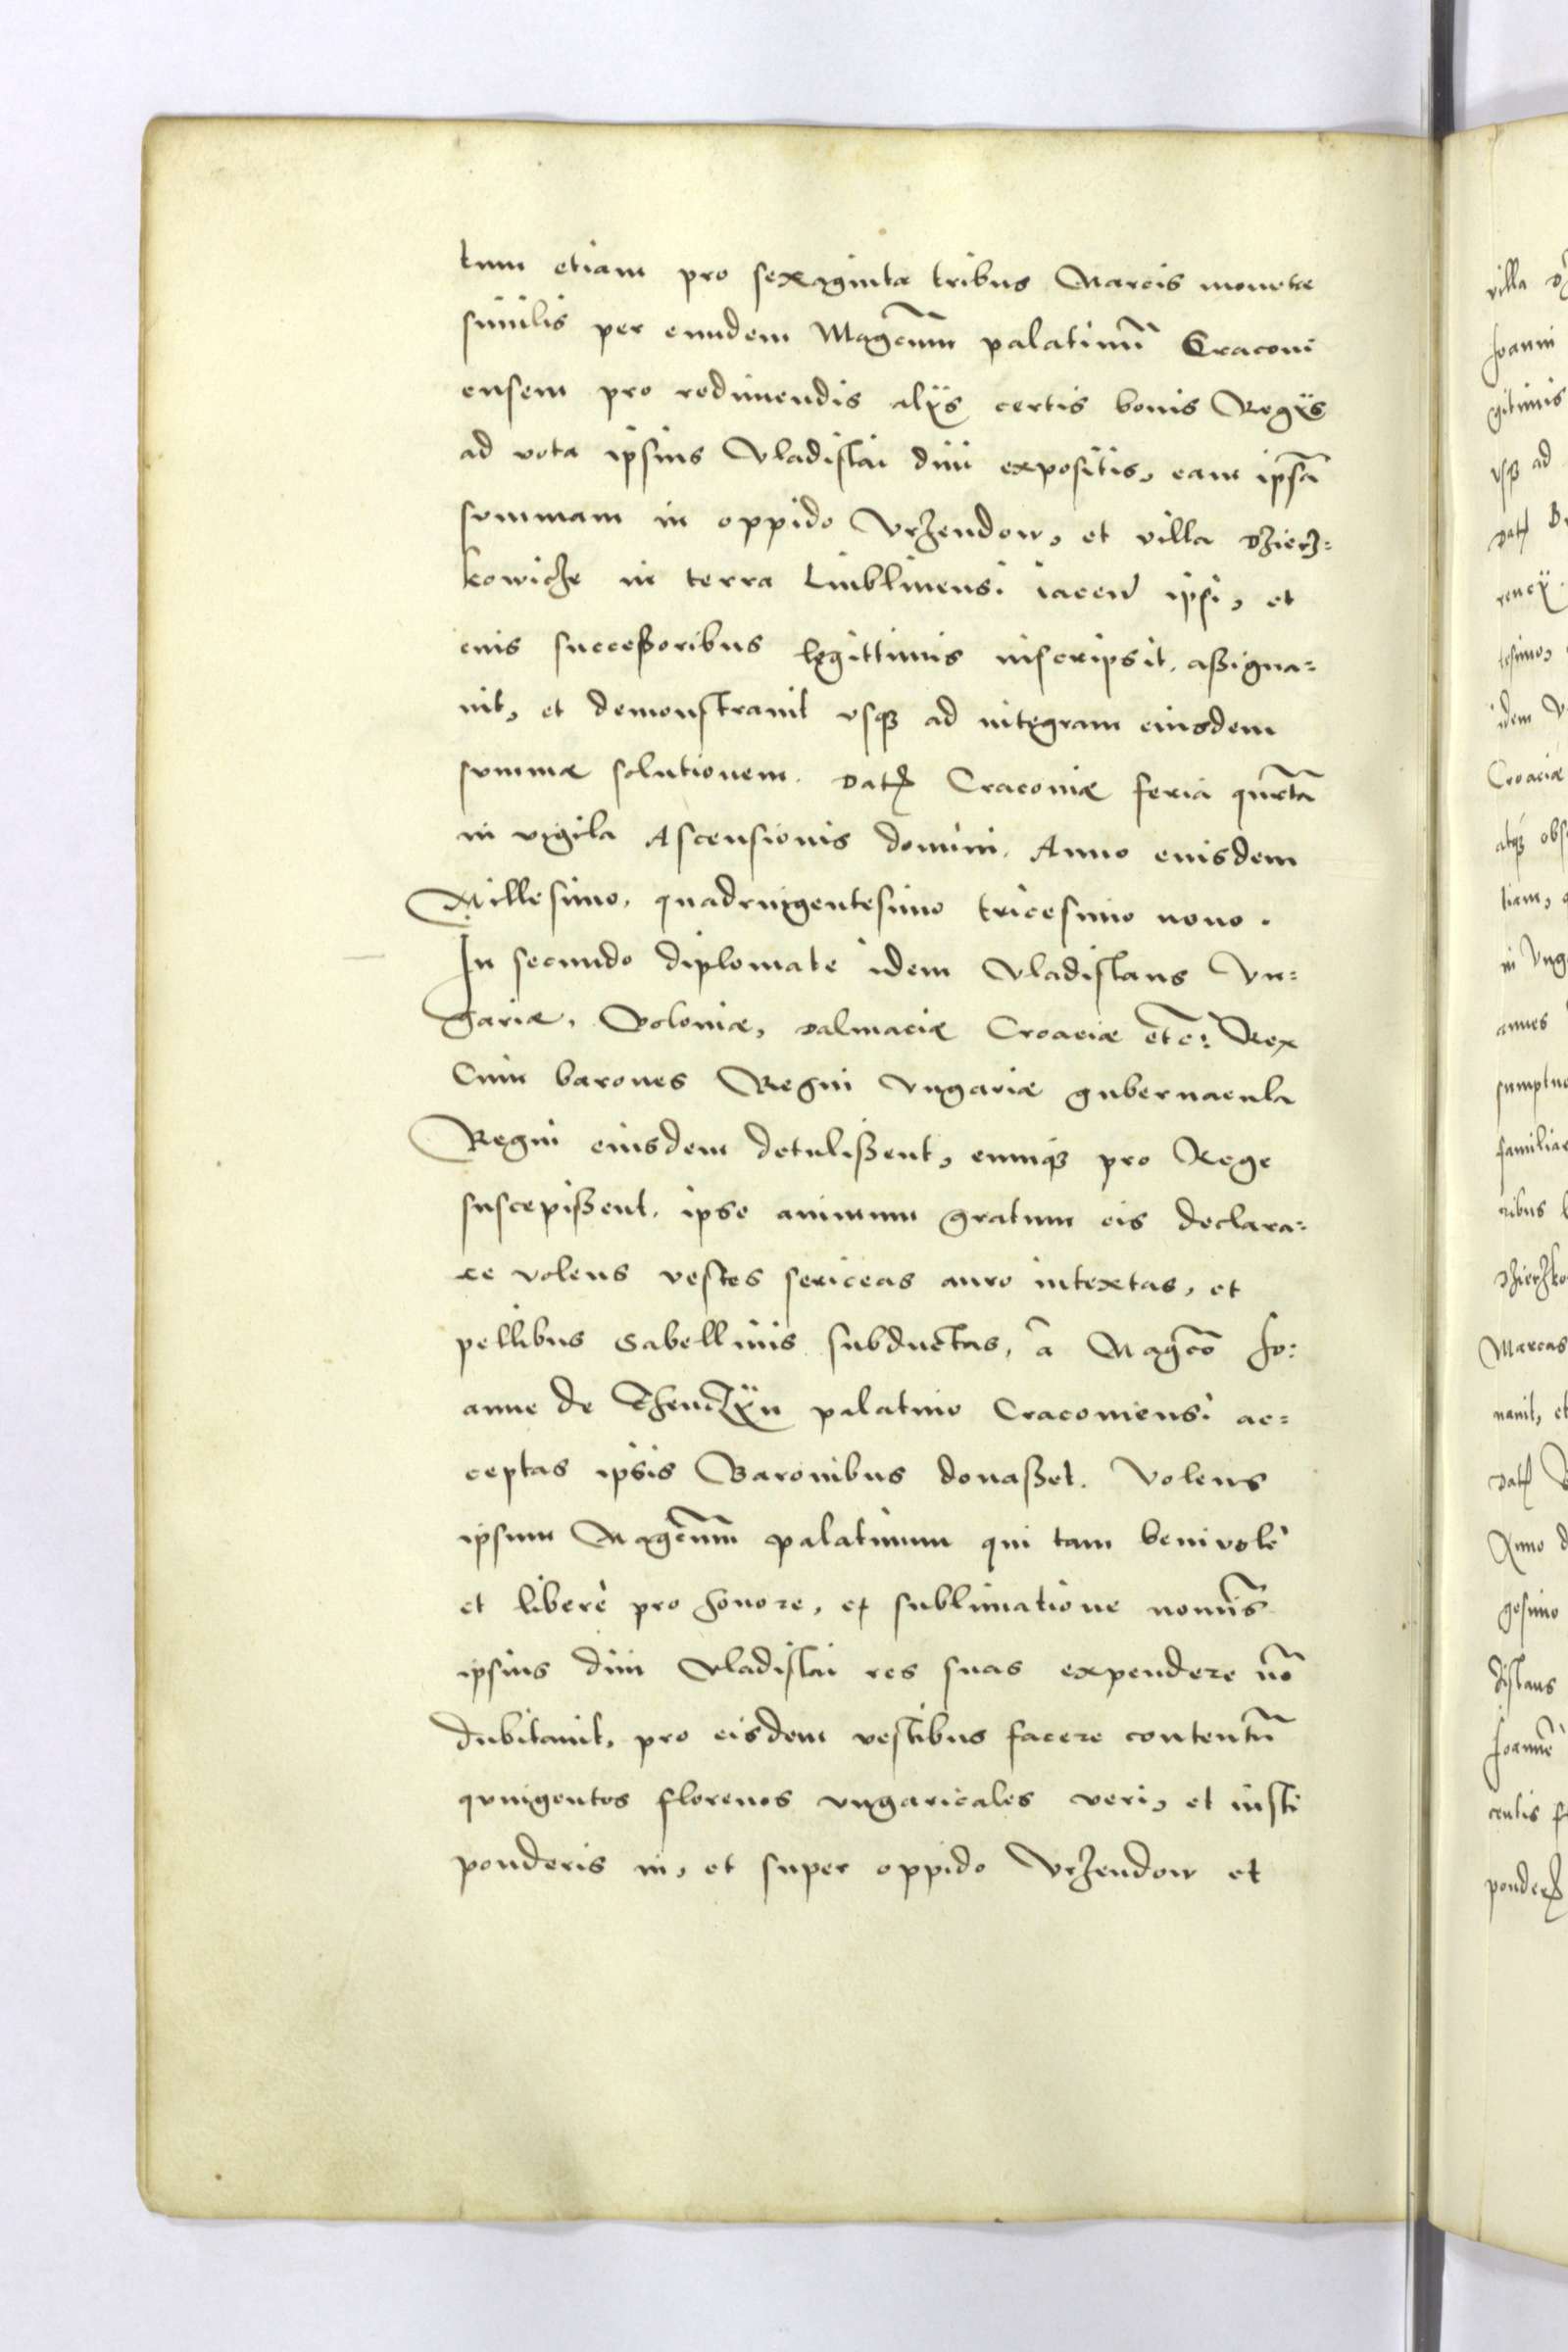 tum etiam pro sexaginta tribus Marcis monetæ
similis per eundem Magcum̃ palatinũ Craconi
ensem pro redimendis alijs certis bonis Regijs
ad vota ipsius Vladislai dñi expositis, eam ipsã
summam in oppido Vrzendow, et villa Dzierz=
kowicze in terra Lublinensi iaceñ ipsi, et
eius successoribus legittimis inscripsit, assigna=
uit, et demonstrauit vsq; ad integram eiusdem
summæ solutionem. Dat Cracouiæ feria quarta
in vigila Ascensionis domini. Anno eiusdem
Millesimo, quadringentesimo tricesimo nono.
In secundo diplomate idem Vladislaus Vn=
gariæ, Poloniæ, Dalmaciæ Croaciæ etc: Rex
Cum barones Regni Vngariæ gubernacula
Regni eiusdem detulissent, eumq; pro Rege
suscepissent, ipse animum gratum eis declara=
re volens vestes sericeas auro intextas, et
pellibus Sabellinis subductas, à Magco Jo=
anne de Thenczÿn palatino Cracouiensi ac=
ceptas ipsis Baronibus donasset. Volens
ipsum Magcum̃ palatinum qui tam beniuolè
et liberè pro honore, et sublimatione nomĩs
ipsius dñi Vladislai res suas expendere nõ
dubitauit, pro eisdem vestibus facere contentũ
quingentos florenos vngaricales veri, et iusti
ponderis in, et super oppido Vrzendow et

villa
Joanni
gitimis
vsq; ad
Dat
tesimo,
idem
Croaciæ
atq;
tiam,
in Vng
annes
sumptu
familiar
ribus
Dzierzko
Marcas
nauit, et
Dat
Anno
gesimo
dislaus
Joannẽ
centis
ponder